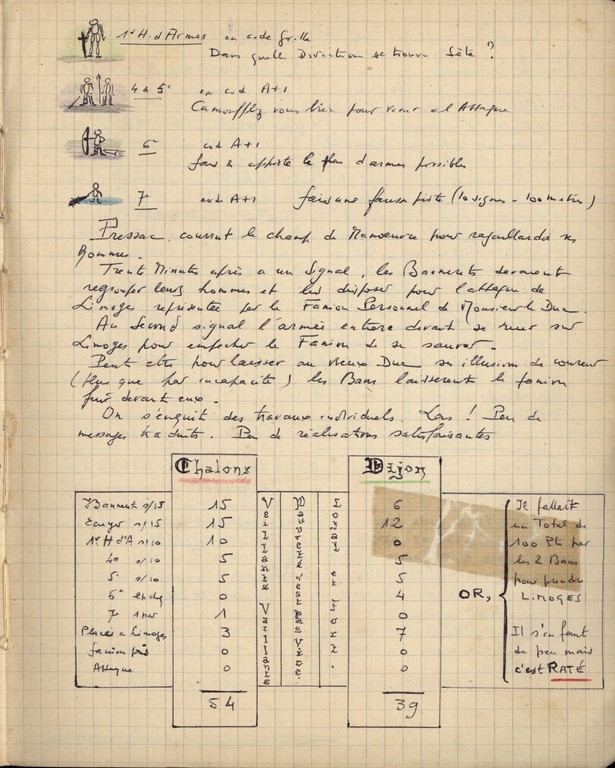 1er H. d'Armes en code Grille
Dans quelle Direction se trouve Sète ?
4 & 5e en cod A+1
Camouflez vous bien pour venir à l'Attaque
6 cod A+1
fais & apporte le plus d'armes possibles
7 cod A+1 fais une fausse piste (10 signes - 100 metres)
Pressac courrut le champ de Manoeuvre pour ragaillardir ses
hommes.
Trente Minutes après a un Signal, les Bannerets devraient
regrouper leurs hommes et les disposer pour l'attaque de
Limoges représentée par le Fanion Personnel de Monsieur le Duc.
Au Second signal l'armée entière devait se ruer sur
Limoges pour empecher le Fanion de se sauver.
Peut etre pour laisser au vieux Duc son illusion de coureur
(plus que par incapacité) les Bans laisserent le fanion
fuir devant eux.
On s'enquit des travaux individuels. Las ! Peu de
messages traduits. Peu de réalisations satisfaisantes
Chalons Dijon
Banneret s/15 15 6
Ecuyer s/15 15 12
1er H d'A s/10 10 0
4e s/10 5 5
5e s/10 5 5
6e 0 4
7 1 0
Places a Limoges 3 7
fanion pris 0 0
Attaque 0 0
54 39
Vaillante Vaillante
Pauvreté n'est pas Vice.
Loyal et
OR,
Il fallait
un Total de
100 Pts par
les 2 Bans
pour prendre
LIMOGES
Il s'en faut
de peu mais
c'est RATÉ